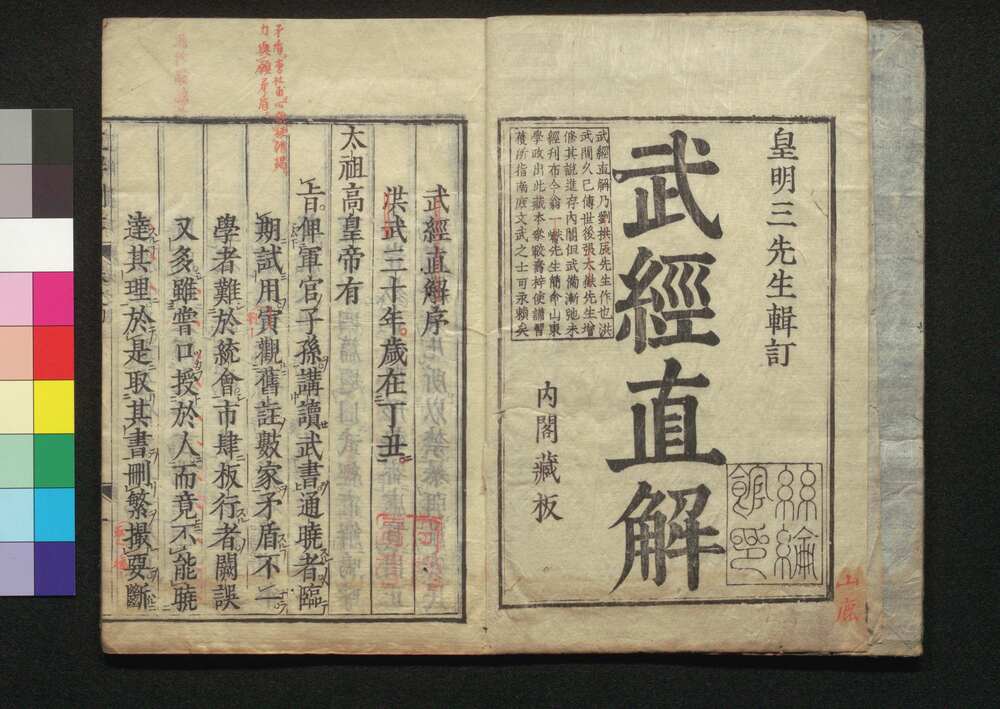 皇明三先生輯訂
武經直解
武經直解乃劉拱辰先生作也洪
武間久已傳世後張太嶽先生增
條其說進存內閣但武備漸弛未
經刊布今翁一先生簡命山東
學政出此藏本參較壽梓使講習
獲所指南庶文武之士可永賴矣
內閣藏板
絲綸
館印
山鹿
武經直解序
洪武三十年歲在丁丑
太祖高皇帝有
旨俾軍官子孫講讀武書通曉者臨
期試用寅觀舊註數家矛盾不一
學者難於統會市肆板行者闕誤
又多雖嘗口授於人而竟不能曉
達其理於是取其書刪繁撮要斷